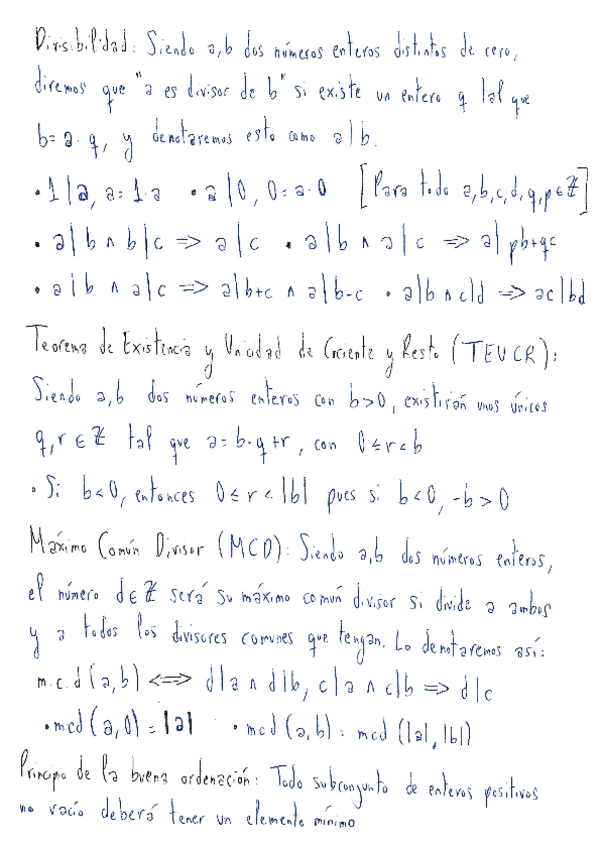 Divisibilidad: Siendo a,b dos números enteros distintos de cero,
diremos que "a es divisor de b" si existe un entero q tal que
b= a·q, y denotaremos esto como a|b.
• 1|a, a= 1·a • a|0, 0= a·0 [Para todo a,b,c,d,q,p∈ℤ]
• a|b ∧ b|c ⇒ a|c • a|b ∧ a|c ⇒ a|pb+qc
• a|b ∧ a|c ⇒ a|b+c ∧ a|b-c • a|b ∧ c|d ⇒ ac|bd
Teorema de Existencia y Unicidad de Cociente y Resto (TEUCR):
Siendo a,b dos números enteros con b>0, existirán unos únicos
q,r ∈ ℤ tal que a= b·q+r, con 0≤r<b
• Si b<0, entonces 0≤r<|b| pues si b<0, -b>0
Máximo Común Divisor (MCD): Siendo a,b dos números enteros,
el número d∈ℤ será su máximo común divisor si divide a ambos
y a todos los divisores comunes que tengan. Lo denotaremos así:
m.c.d(a,b) <=> d|a ∧ d|b, c|a ∧ c|b ⇒ d|c
• mcd(a,0) = |a| • mcd(a,b) = mcd(|a|,|b|)
Principio de la buena ordenación: Todo subconjunto de enteros positivos
no vacío deberá tener un elemento mínimo